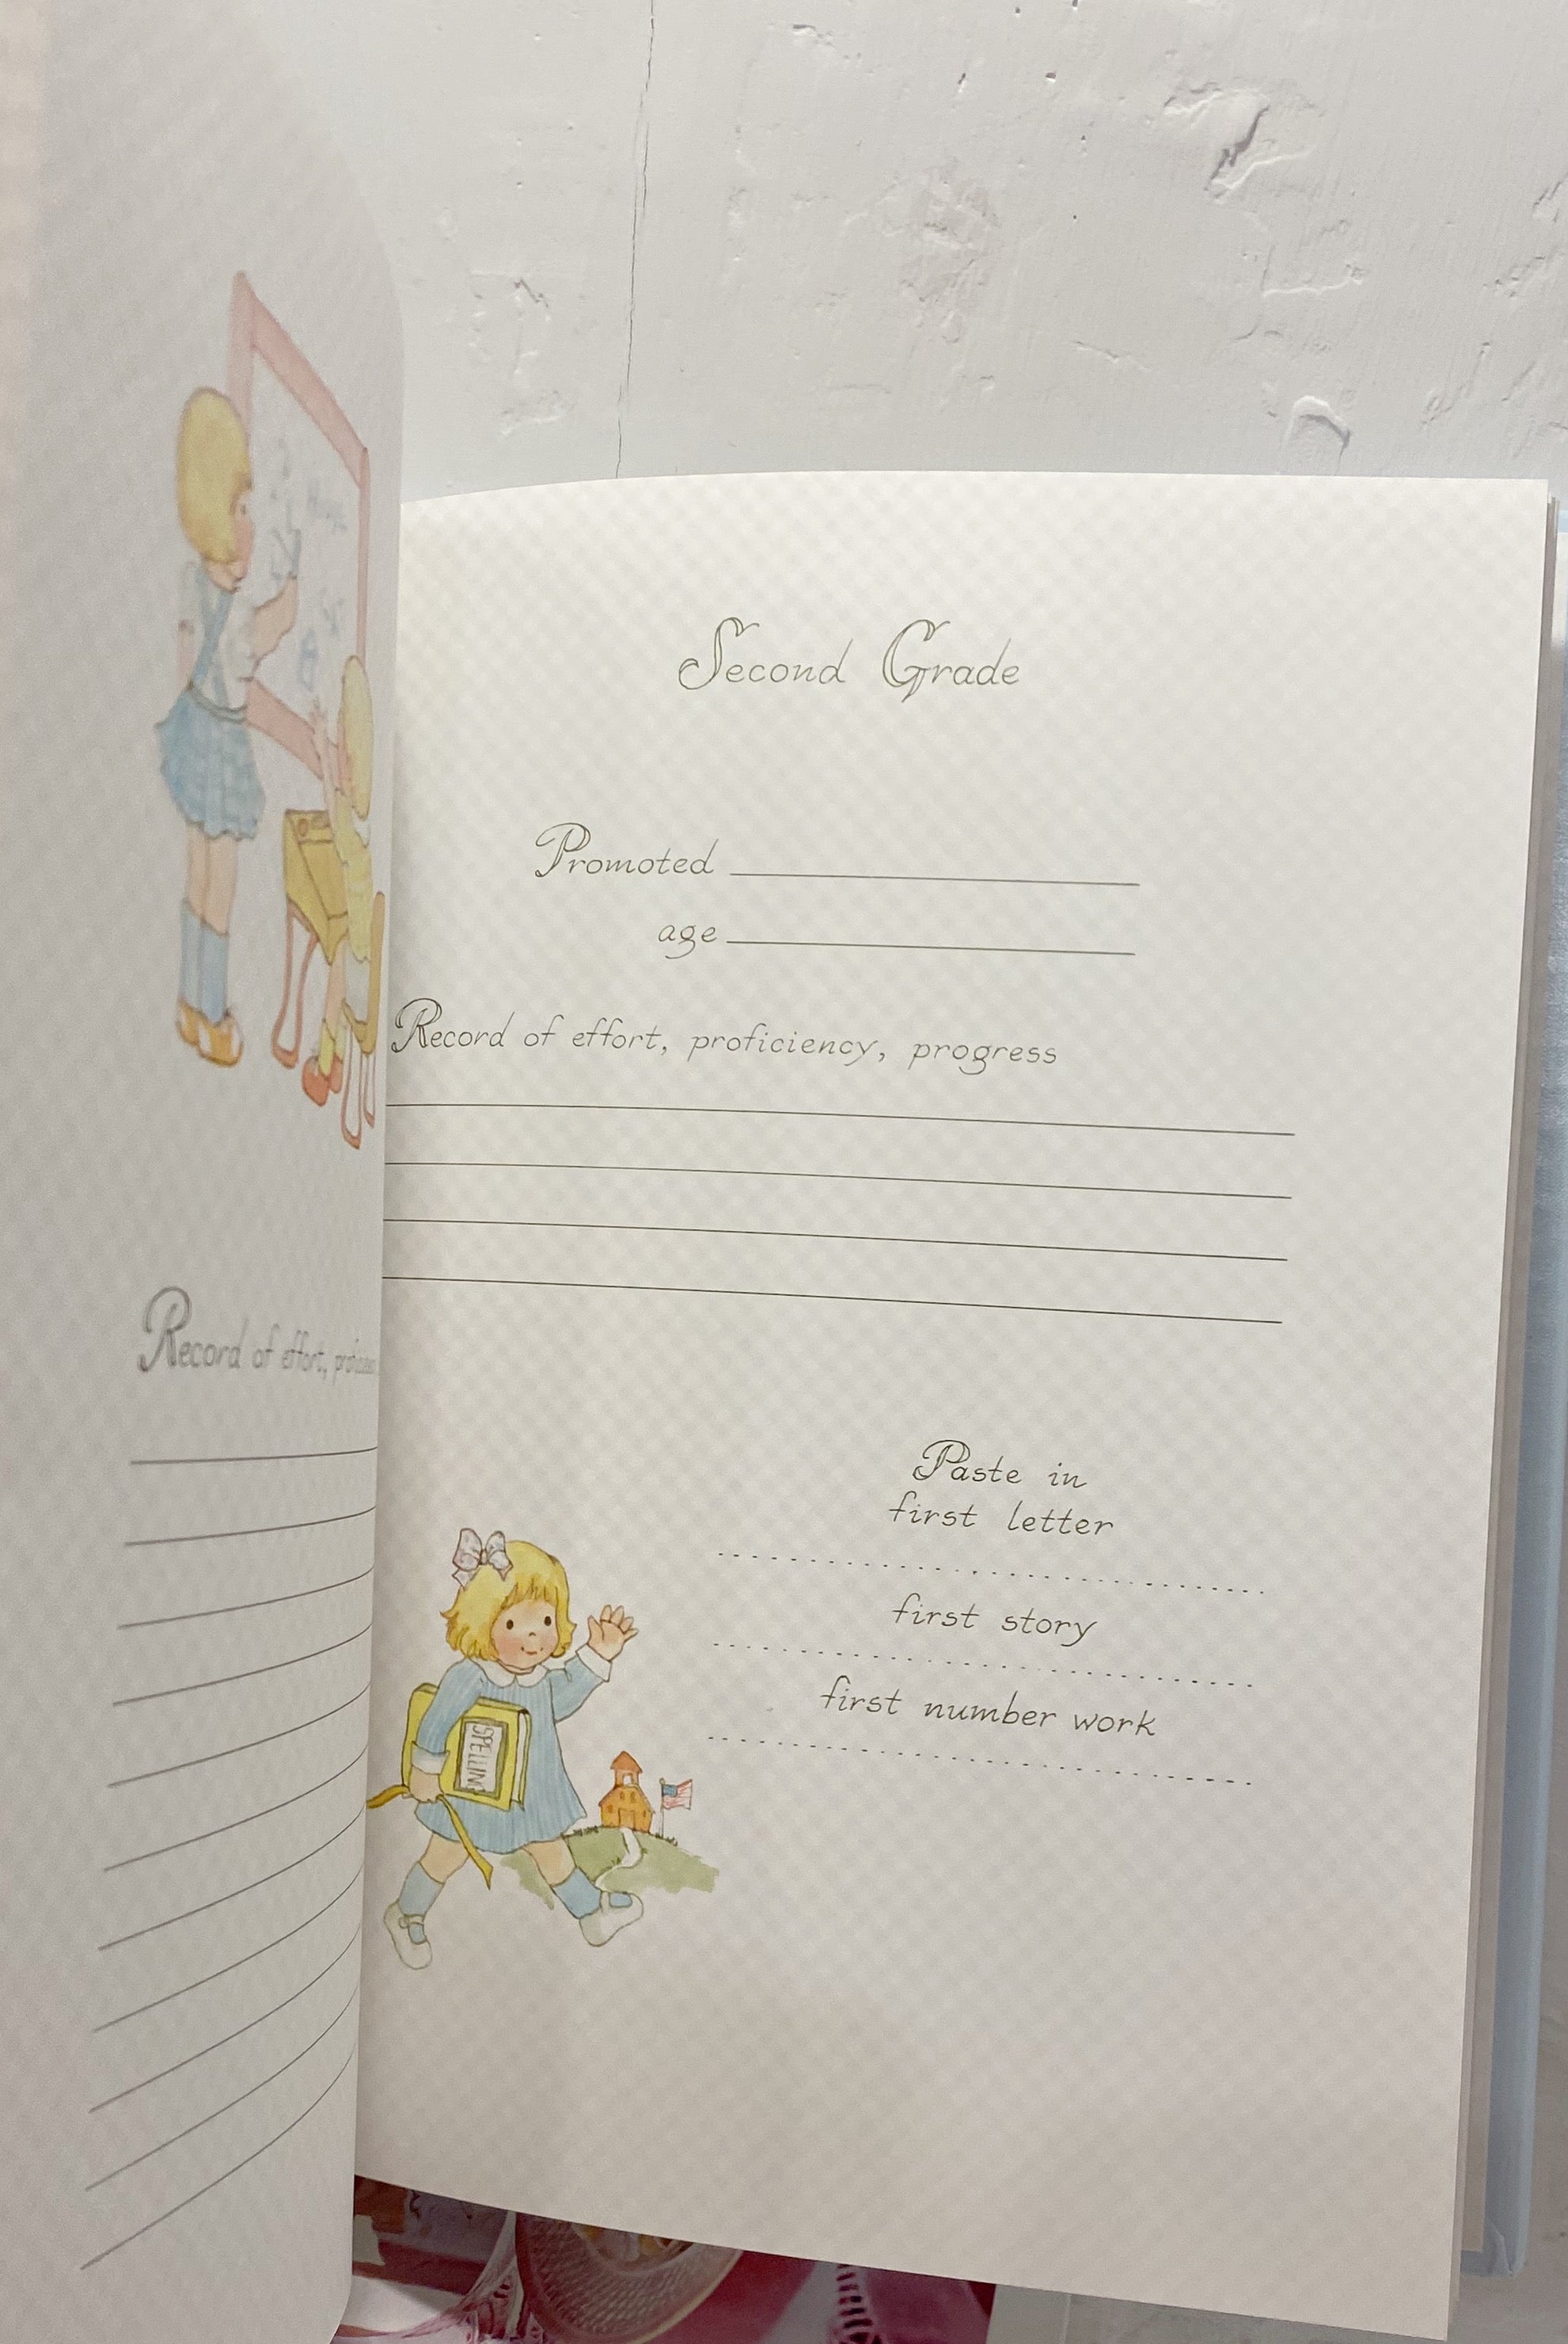 Record of effort,
Second Grade
Promoted
age
Record of effort, proficiency, progress
Paste in
first letter
first story
first number work
SPELLIN